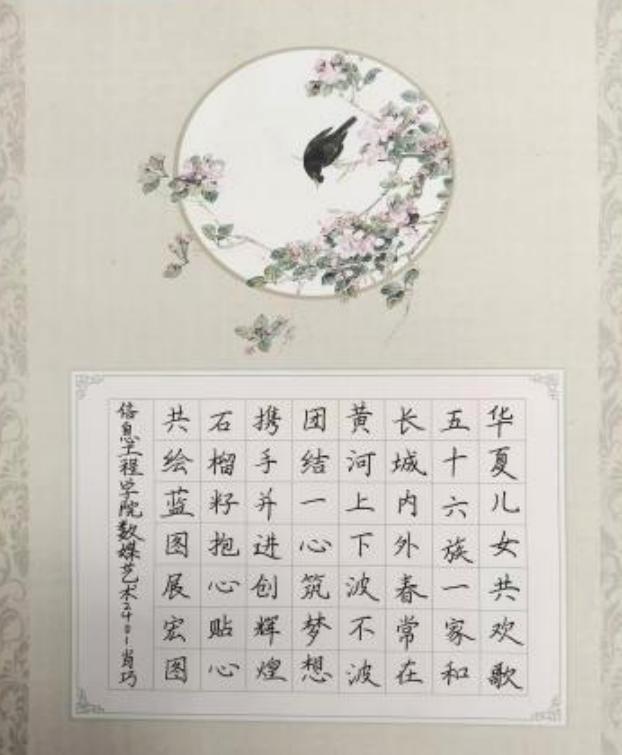 华夏儿女共欢歌
五十六族一家和
长城内外春常在
黄河上下波不波
团结一心筑梦想
携手并进创辉煌
石榴籽抱心贴心
共绘蓝图展宏图
信息工程学院数媒艺术2401肖巧